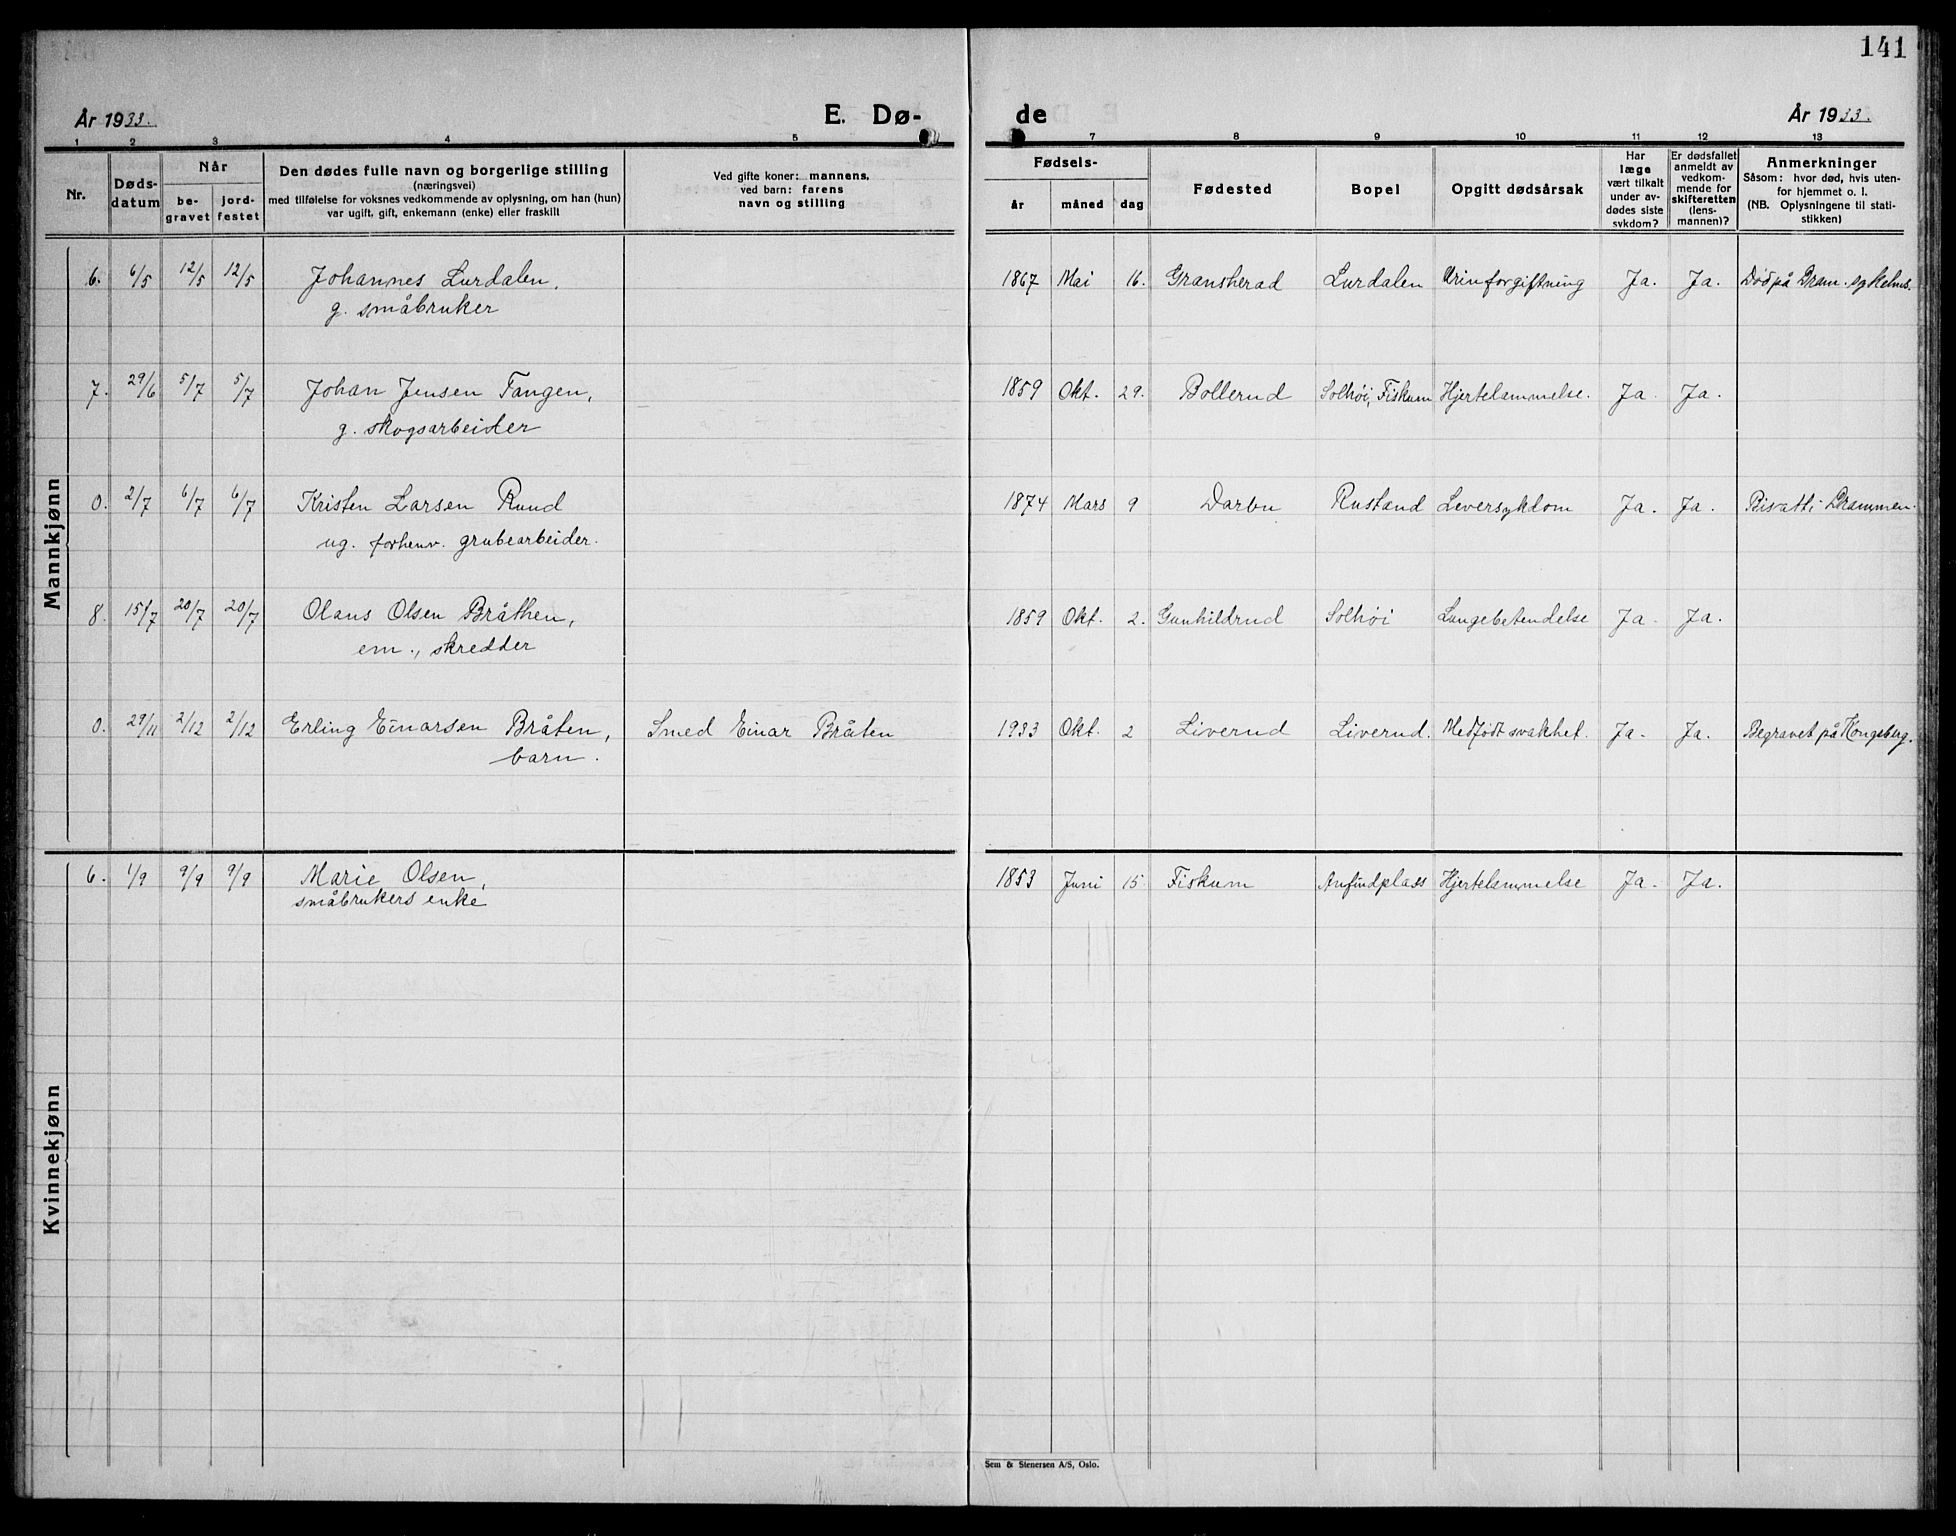 141
År 1933.
E. Dø-
de
År 1933.
1 2 3 4 5 7 8 9 10 11 12 13
Nr.
Døds-
datum
Når
be-
gravet
jord-
festet
Den dødes fulle navn og borgerlige stilling
(næringsvei)
med tilføielse for voksnes vedkommende av oplysning, om han (hun)
var ugift, gift, enkemann (enke) eller fraskilt
Ved gifte koner: mannens,
ved barn: farens
navn og stilling
Fødsels-
år
måned
dag
Fødested
Bopel
Opgitt dødsårsak
Har
læge
vært tilkalt
under av-
dødes siste
sykdom?
Er dødsfallet
anmeldt av
vedkom-
mende for
skifteretten
(lens-
mannen)?
Anmerkninger
Såsom: hvor død, hvis uten-
for hjemmet o. l.
(NB. Oplysningene til stati-
stikken)
Mannkjønn
6. 6/5 12/5 12/5 Johannes Lurdalen, 1867 Mai 16. Gransherad Lurdalen Urinforgiftning Ja. Ja. Død på Dram. sykehus.
g. småbruker
7. 29/6 5/7 5/7 Johan Jensen Tangen, 1859 Okt. 29. Bollerud Solhøi, Fiskum Hjertelammelse. Ja. Ja.
g. skogsarbeider
0. 2/7 6/7 6/7 Kristen Larsen Ruud 1874 Mars 9 Darbu Rustand Leversykdom Ja. Ja. Bisatt i Drammen.
ug. forhenv. grubearbeider.
8. 15/7 20/7 20/7 Olaus Olsen Bråthen, 1859 Okt. 2. Gunhildrud Solhøi Lungebetendelse Ja. Ja.
em., skredder
0. 29/11 2/12 2/12 Erling Einarsen Bråten, Smed Einar Bråten 1933 Okt. 2 Liverud Liverud. Medfødt svakhet. Ja. Ja. Begravet på Kongsberg.
barn.
Kvinnekjønn
6. 1/9 9/9 9/9 Marie Olsen, 1853 Juni 15. Fiskum Anfindplass Hjertelammelse Ja. Ja.
småbrukers enke
Sem & Stenersen A/S, Oslo.